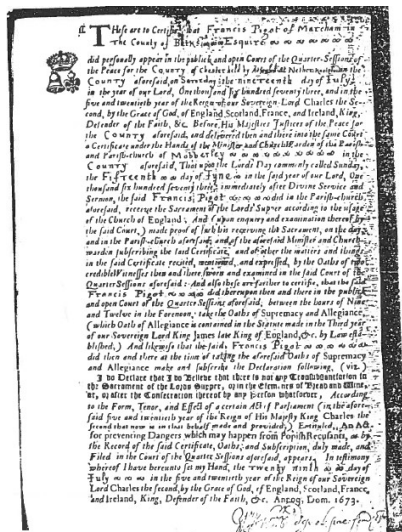 These are to Certifie, that Francis Pigot of Marcham in
The County of Esquire
did personally appear in the publick and open Court of the Quarter-Sessions of
the Peace for the County of Chester held by at Nether in the
County aforesaid, on Saturday the nineteenth day of July
in the year of our Lord, One thousand six hundred seventy three, and in the
five and twentieth year of the Reign of our Sovereign Lord Charles the Se-
cond, by the Grace of God, of England, Scotland, France, and Ireland, King,
Defender of the Faith, &c. Before His Majesties Justices of the Peace for
the County aforesaid, and delivered then and there into the same Court
a Certificate under the Hands of the Minister and Church-Warden of the Parish
and Parish-church of Mobberley in the
County aforesaid, That upon the Lords Day commonly called Sunday,
the Fifteenth day of June in the said year of our Lord, One
thousand six hundred seventy three, immediately after Divine Service and
Sermon, the said Francis Pigot did in the Parish-church
aforesaid, receive the Sacrament of the Lords Supper according to the usage
of the Church of England; And (upon enquiry and examination thereof by
the said Court,) made proof of such his receiving the Sacrament, on the day,
and in the Parish-church aforesaid, and of the aforesaid Minister and Church-
warden subscribing the said Certificate, and of other the matters and things
in the said Certificate recited, mentioned, and expressed, by the Oaths of two
credible Witnesses then and there sworn and examined in the said Court of the
Quarter Sessions aforesaid: And also these are further to certifie, that the said
Francis Pigot did thereupon then and there in the publick
and open Court of the Quarter Sessions aforesaid, between the hours of Nine
and Twelve in the Forenoon, take the Oaths of Supremacy and Allegiance
(which Oath of Allegiance is contained in the Statute made in the Third year
of our Sovereign Lord King James late King of England, &c. by Law esta-
blished,) And likewise that the said, Francis Pigot
did then and there at the time of taking the aforesaid Oaths of Supremacy
and Allegiance make and subscribe the Declaration following, (viz.)
I do Declare that I do Believe that there is not any Transubstantiation in
the Sacrament of the Lords Supper, or in the Elements of Bread and Wine,
at, or after the Consecration thereof by any Person whatsoever, According
to the Form, Tenor, and Effect of a certain Act of Parliament (in the afore-
said five and twentieth year of the Reign of His Majesty King Charles the
second that now is in that behalf made and provided,) Entituled, An Act
for preventing Dangers which may happen from Popish Recusants, as by
the Record of the said Certificate, Oaths, and Subscription, duly made, and
Filed in the Court of the Quarter Sessions aforesaid, appears. In testimony
whereof I have hereunto set my Hand, the Twenty ninth day of
July in the five and twentieth year of the Reign of our Sovereign
Lord Charles the second, by the Grace of God, of England, Scotland, France,
and Ireland, King, Defender of the Faith, &c. Annoq, Dom. 1673.